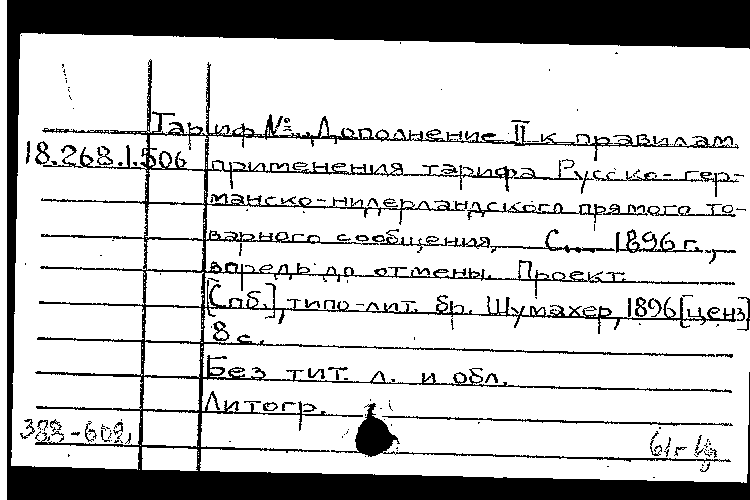 Тариф №... Дополнение II к правилам
18.268.1.506 применения тарифа Русско-гер-
манско-нидерландского прямого то-
варного сообщения, С... 1896 г.,
впредь до отмены. Проект.
[Спб.], типо-лит. бр. Шумахер, 1896 [ценз]
8 с.
Без тит. л. и обл.
Литогр.
388-602